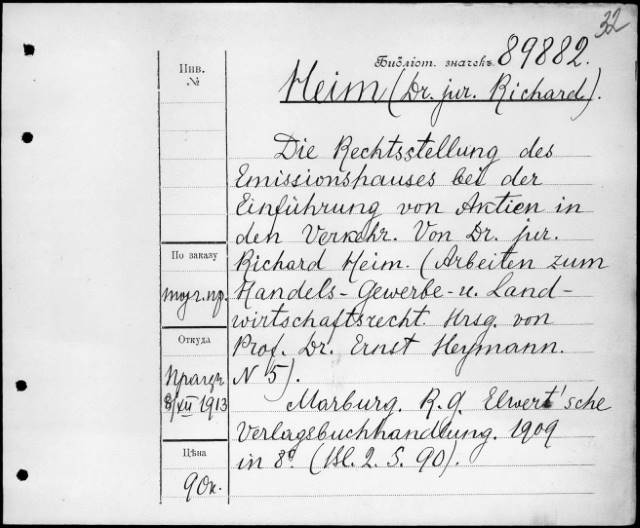 32
Библіот. значекъ 89882.
Инв.
№
Heim (Dr. jur. Richard).
Die Rechtsstellung des
Emissionshauses bei der
Einführung von Aktien in
den Verkehr. Von Dr. jur.
Richard Heim. (Arbeiten zum
Handels- Gewerbe- u. Land-
wirtschaftsrecht. Hrsg. von
Prof. Dr. Ernst Heymann.
N 5).
Marburg. R. G. Elwert'sche
Verlagsbuchhandlung. 1909
in 8º. (Bl. 2. S. 90).
По заказу
Откуда
8/XII 1913
Цѣна
90к.